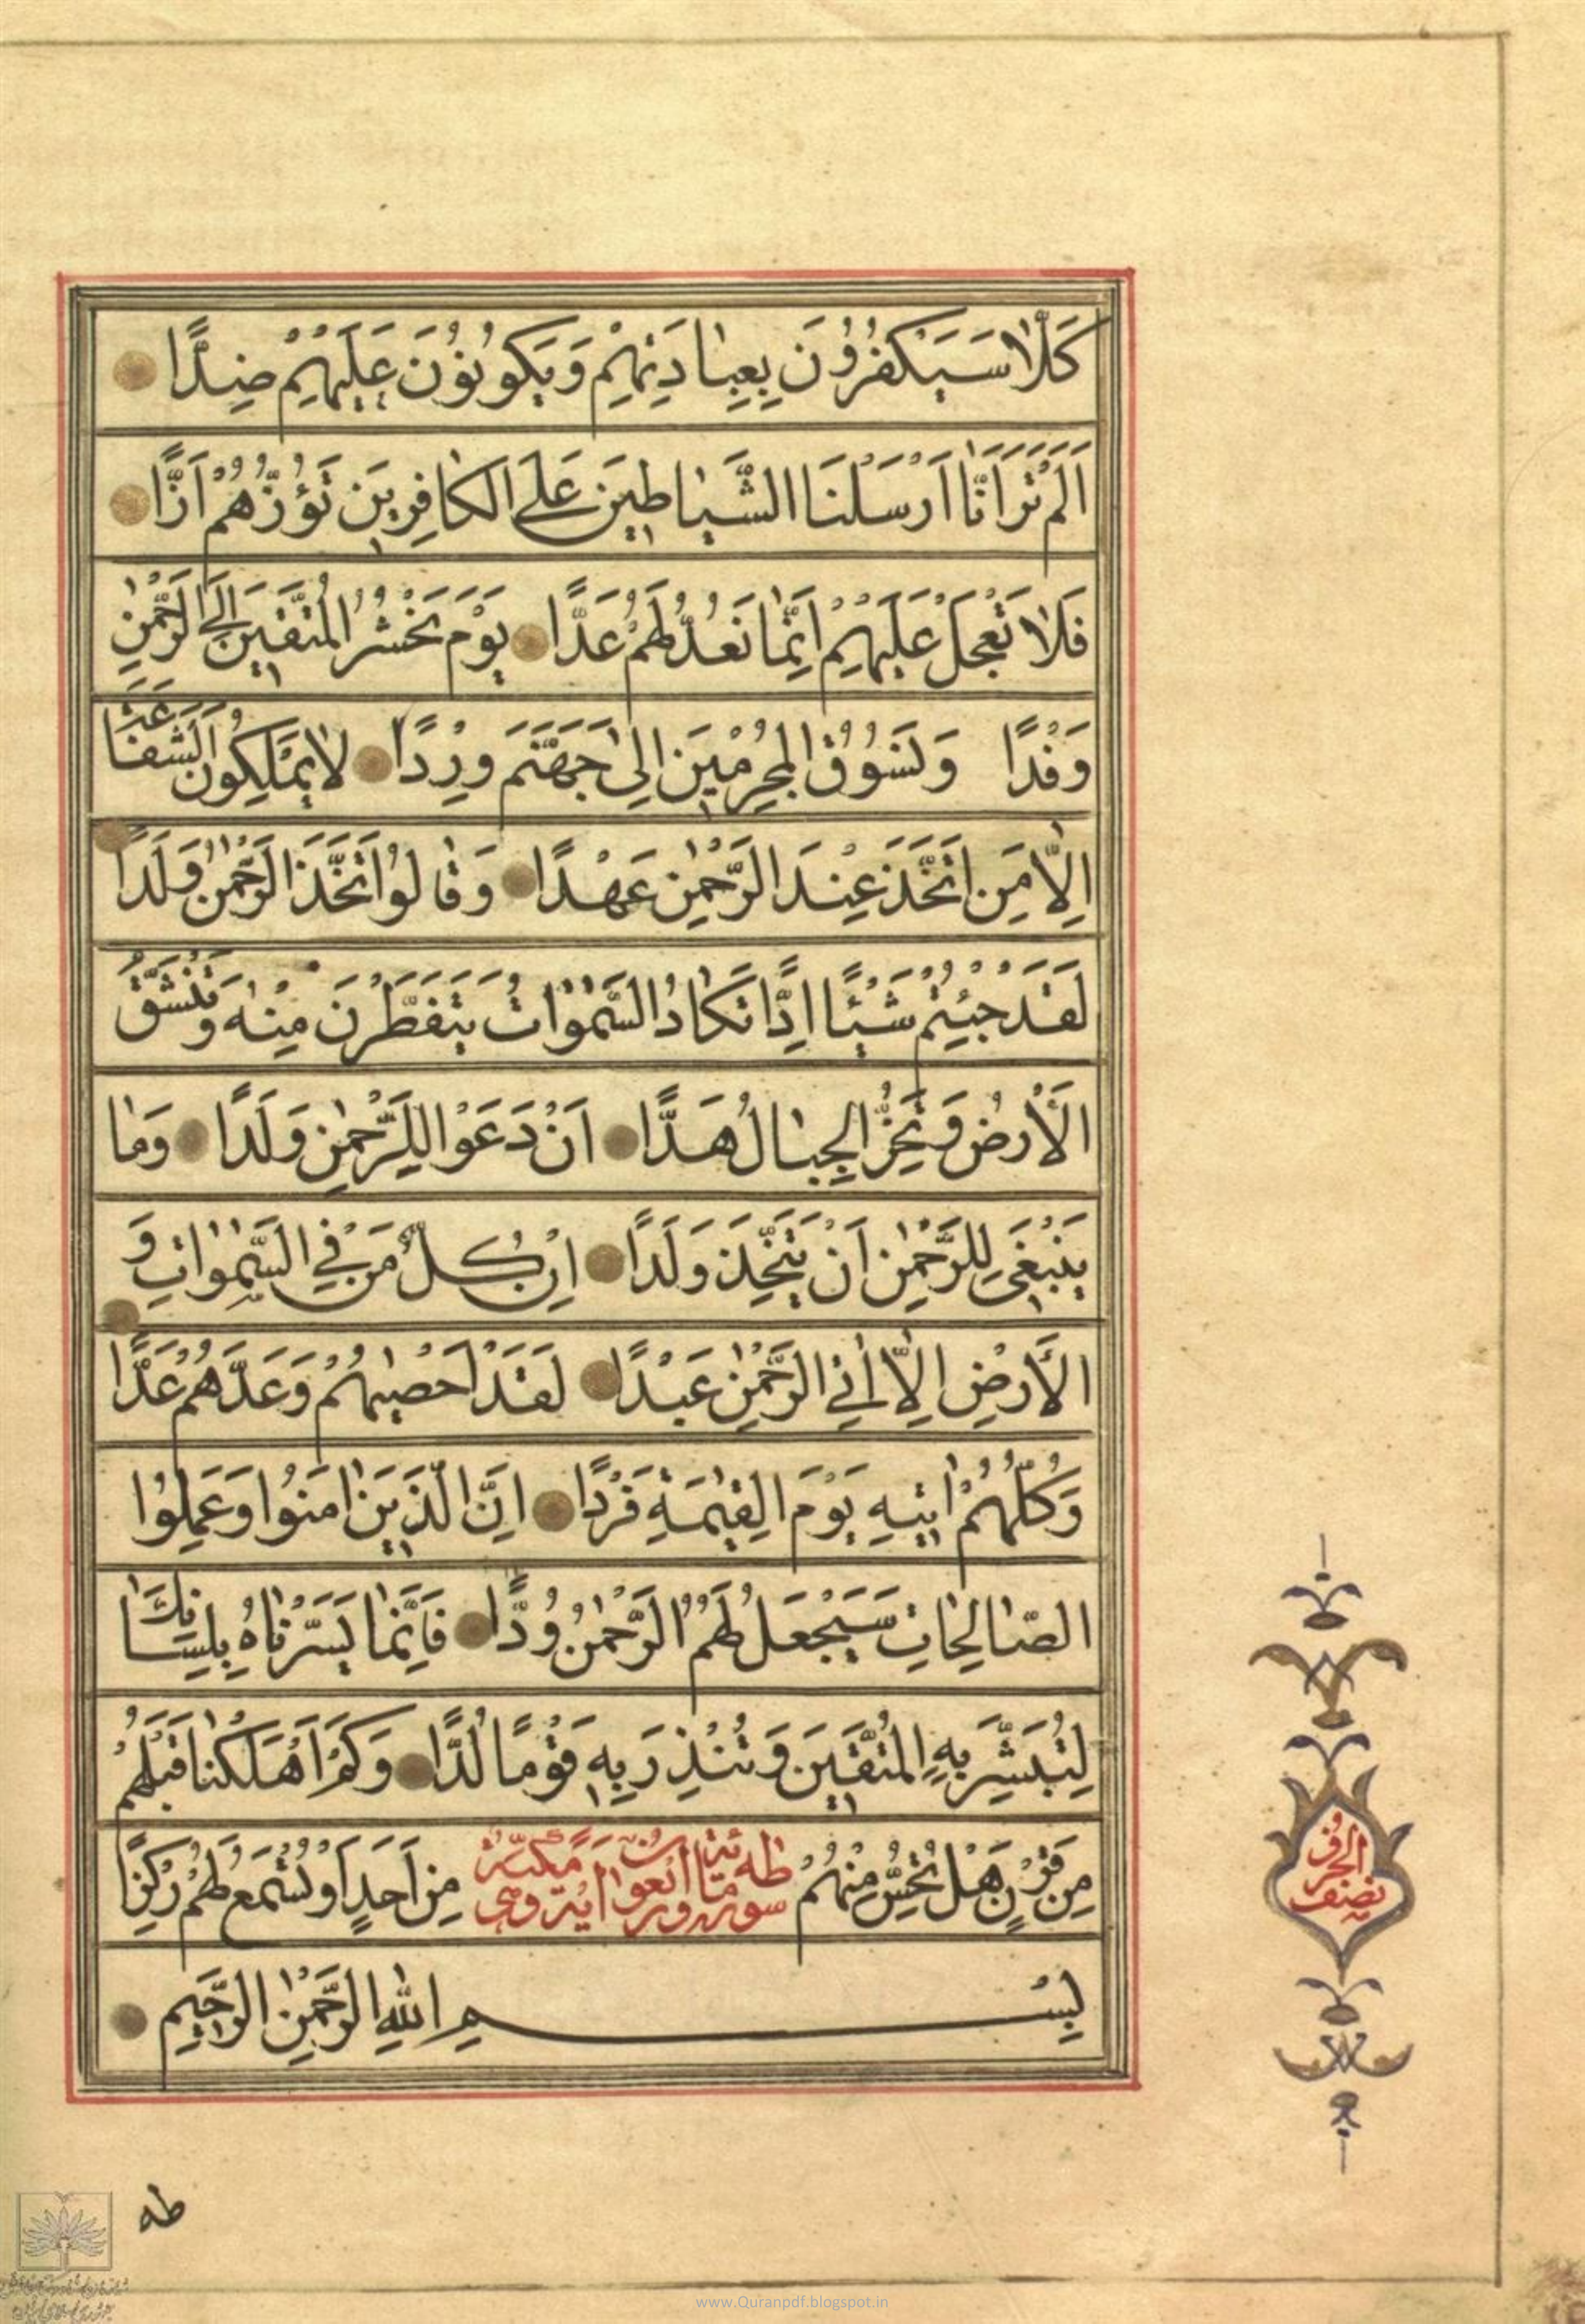 كَلَّا سَيَكْفُرُونَ بِعِبَادَتِهِمْ وَيَكُونُونَ عَلَيْهِمْ ضِدًّا
اَلَمْ تَرَ اَنَّا اَرْسَلْنَا الشَّيَاطِينَ عَلَى الْكَافِرِينَ تَؤُزُّهُمْ اَزًّا
فَلَا تَعْجَلْ عَلَيْهِمْ اِنَّمَا نَعُدُّ لَهُمْ عَدًّا يَوْمَ نَحْشُرُ الْمُتَّقِينَ اِلَى الرَّحْمٰنِ
وَفْدًا وَنَسُوقُ الْمُجْرِمِينَ اِلٰى جَهَنَّمَ وِرْدًا لَا يَمْلِكُونَ الشَّفَاعَةَ
اِلَّا مَنِ اتَّخَذَ عِنْدَ الرَّحْمٰنِ عَهْدًا وَقَالُوا اتَّخَذَ الرَّحْمٰنُ وَلَدًا
لَقَدْ جِئْتُمْ شَيْئًا اِدًّا تَكَادُ السَّمٰوَاتُ يَتَفَطَّرْنَ مِنْهُ وَتَنْشَقُّ
الْاَرْضُ وَتَخِرُّ الْجِبَالُ هَدًّا اَنْ دَعَوْا لِلرَّحْمٰنِ وَلَدًا وَمَا
يَنْبَغِي لِلرَّحْمٰنِ اَنْ يَتَّخِذَ وَلَدًا اِنْ كُلُّ مَنْ فِي السَّمٰوَاتِ وَ
الْاَرْضِ اِلَّا اٰتِي الرَّحْمٰنِ عَبْدًا لَقَدْ اَحْصٰيهُمْ وَعَدَّهُمْ عَدًّا
وَكُلُّهُمْ اٰتِيهِ يَوْمَ الْقِيٰمَةِ فَرْدًا اِنَّ الَّذِينَ اٰمَنُوا وَعَمِلُوا
الصَّالِحَاتِ سَيَجْعَلُ لَهُمُ الرَّحْمٰنُ وُدًّا فَاِنَّمَا يَسَّرْنَاهُ بِلِسَانِكَ
لِتُبَشِّرَ بِهِ الْمُتَّقِينَ وَتُنْذِرَ بِهِ قَوْمًا لُدًّا وَكَمْ اَهْلَكْنَا قَبْلَهُمْ
مِنْ قَرْنٍ هَلْ تُحِسُّ مِنْهُمْ مِنْ اَحَدٍ اَوْ تَسْمَعُ لَهُمْ رِكْزًا
سورة طه
بِسْمِ اللهِ الرَّحْمٰنِ الرَّحِيمِ
نصف
طه
www.Quranpdf.blogspot.in